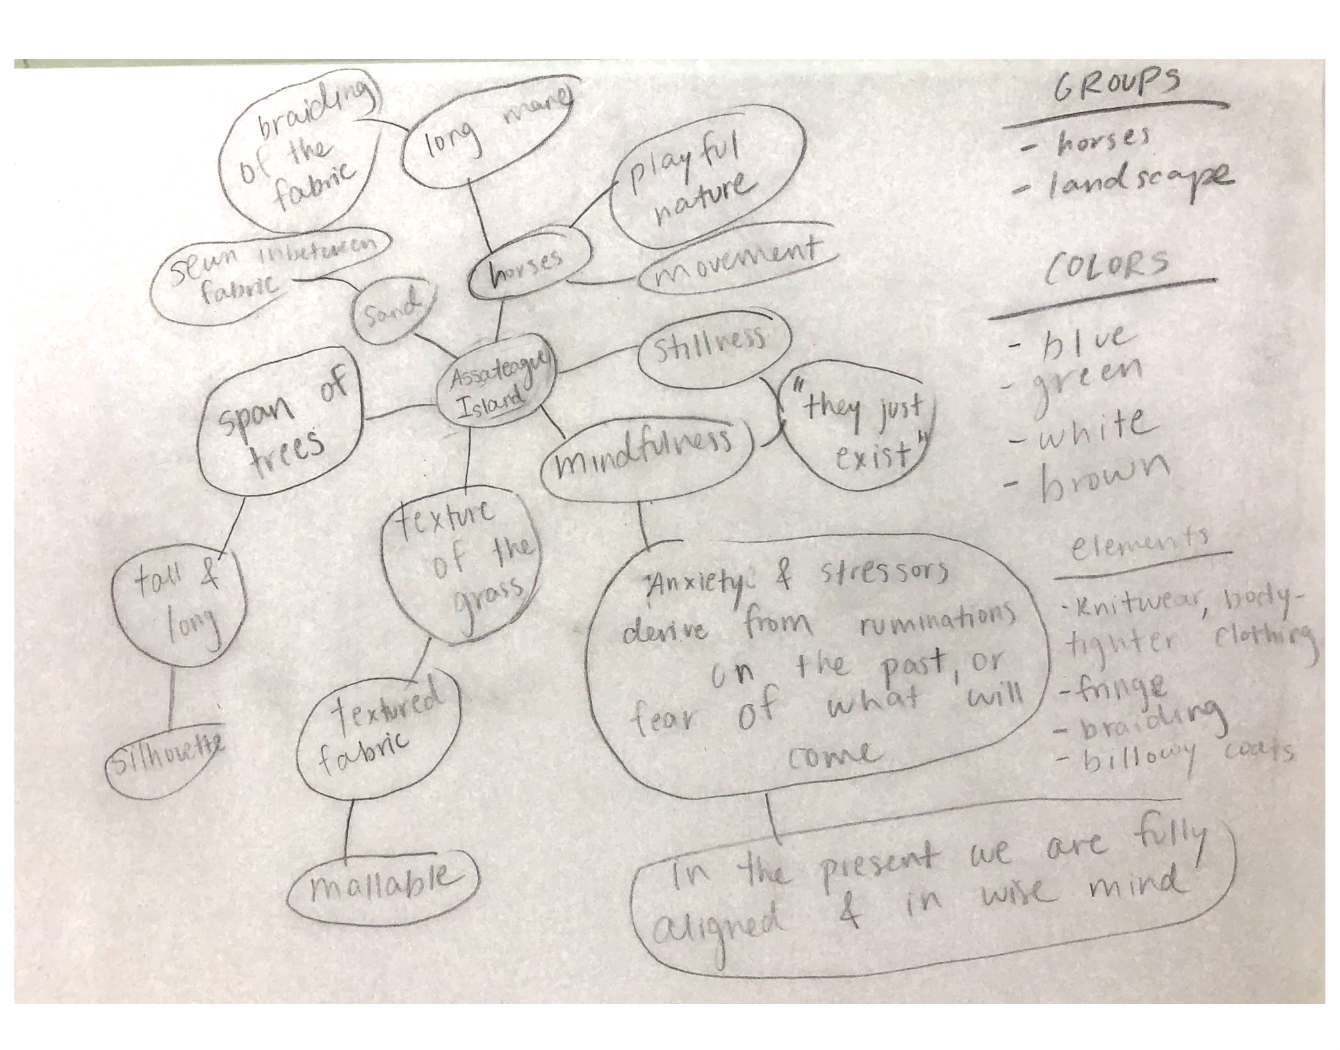 braiding
of the
fabric
long mane
playful
nature
movement
horses
sewn inbetween
fabric
sand
Assateague
Island
stillness
"they just
exist"
mindfulness
span of
trees
tall &
long
silhouette
texture
of the
grass
textured
fabric
mallable
Anxiety & stressors
derive from ruminations
on the past, or
fear of what will
come
In the present we are fully
aligned & in wise mind
GROUPS
- horses
- landscape
COLORS
- blue
- green
- white
- brown
elements
- knitwear, body-
tighter clothing
- fringe
- braiding
- billowy coats